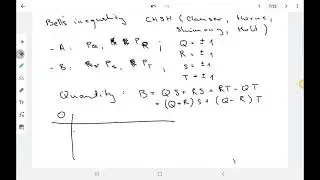 Bell's inequality CHSH (Clauser, Horne,
Shimony, Holt)
- A: PQ, PR ; Q = ± 1
R = ± 1
- B: PS, PT ; S = ± 1
T = ± 1
Quantity: B = QS + RS + RT - QT
= (Q+R) S + (Q-R) T
O